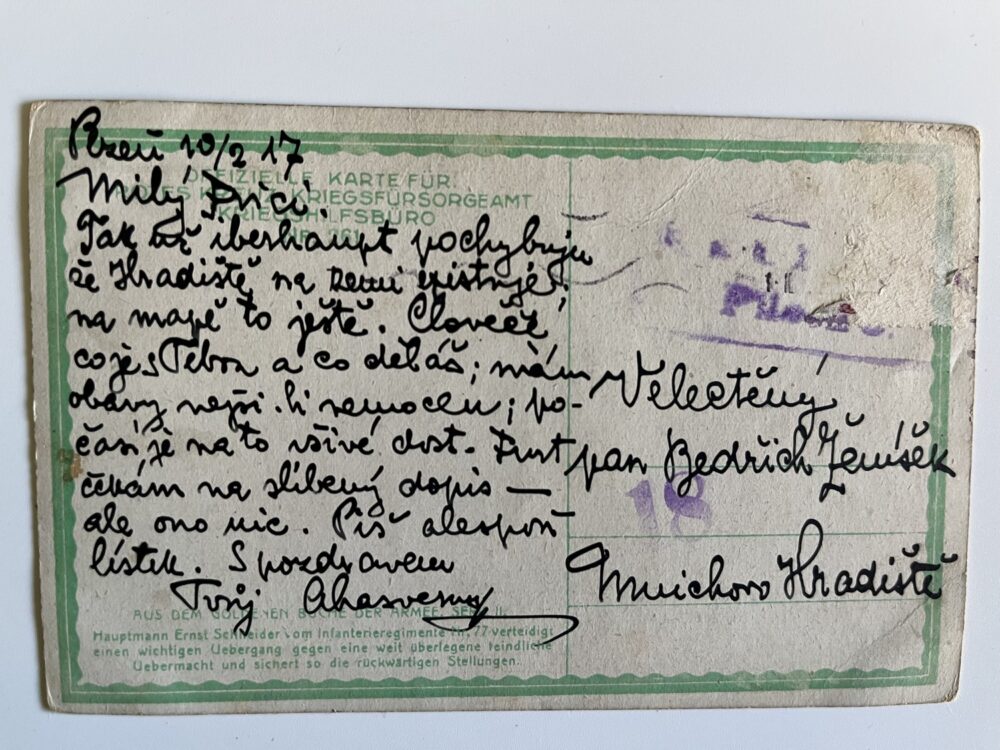 Plzeň 10/2 17
OFFIZIELLE KARTE FÜR
ROTES KREUZ, KRIEGSFÜRSORGEAMT
KRIEGSHILFSBÜRO
Nr. 261
Milý Frici.
Tak už überhaupt pochybuju
že Hradiště na zemi existuje;
na mapě to ještě. Clověče
co je s Tebou a co děláš; mám
obavy nejsi-li nemocen; po-
časí je na to všivé dost. Furt
čekám na slíbený dopis —
ale ono nic. Piš alespoň
lístek. S pozdravem
Tvůj Ahasver
AUS DEM GOLDENEN BUCHE DER ARMEE, SERIE II.
Hauptmann Ernst Schneider vom Infanterieregimente Nr. 77 verteidigt
einen wichtigen Uebergang gegen eine weit überlegene feindliche
Uebermacht und sichert so die rückwärtigen Stellungen.
Velectěný
pan Bedřich Ženíšek
18
Mnichovo Hradiště